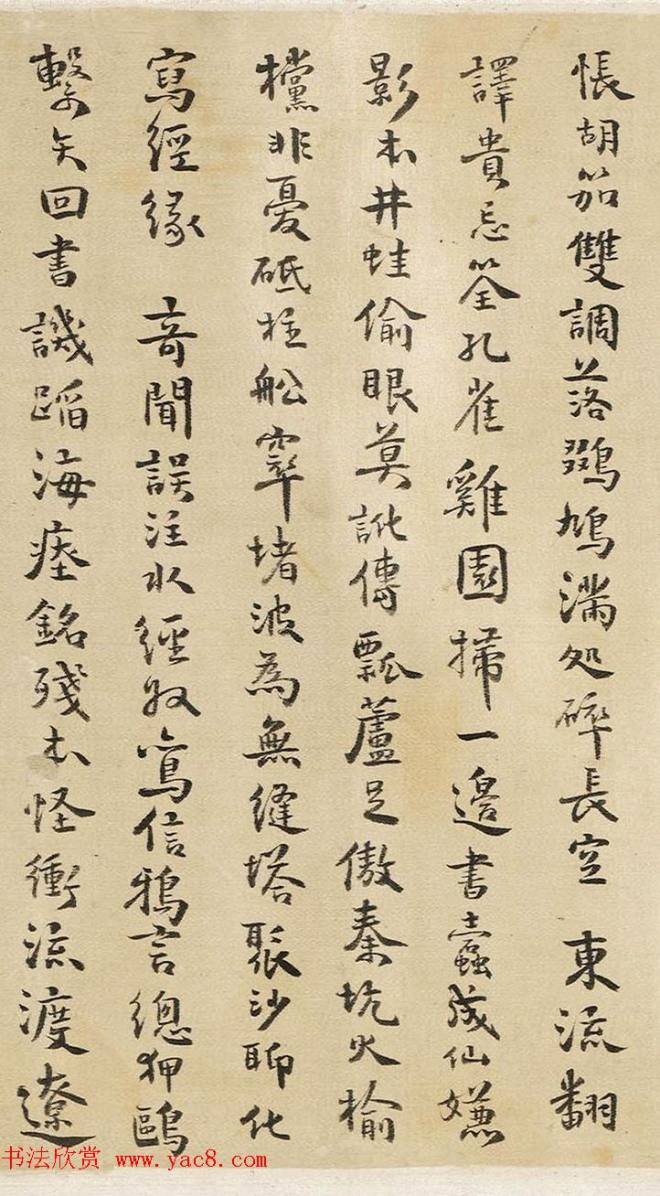 悵胡笳雙調落鵽鳩滿処碎長空 東流翻
譯貴忘筌孔雀雞園掃一邊書蠹成仙嫌
影本井蛙偷眼莫訛傳瓢蘆足傲秦坑火榆
欓非憂砥柱舩窣堵波為無縫塔聚沙聊化
寫經緣 奇聞誤注水經收鴍信鴉言總狎鷗
繫矢回書譏蹈海瘞銘殘本怪衝流渡遼
书法欣赏 www.yac8.com